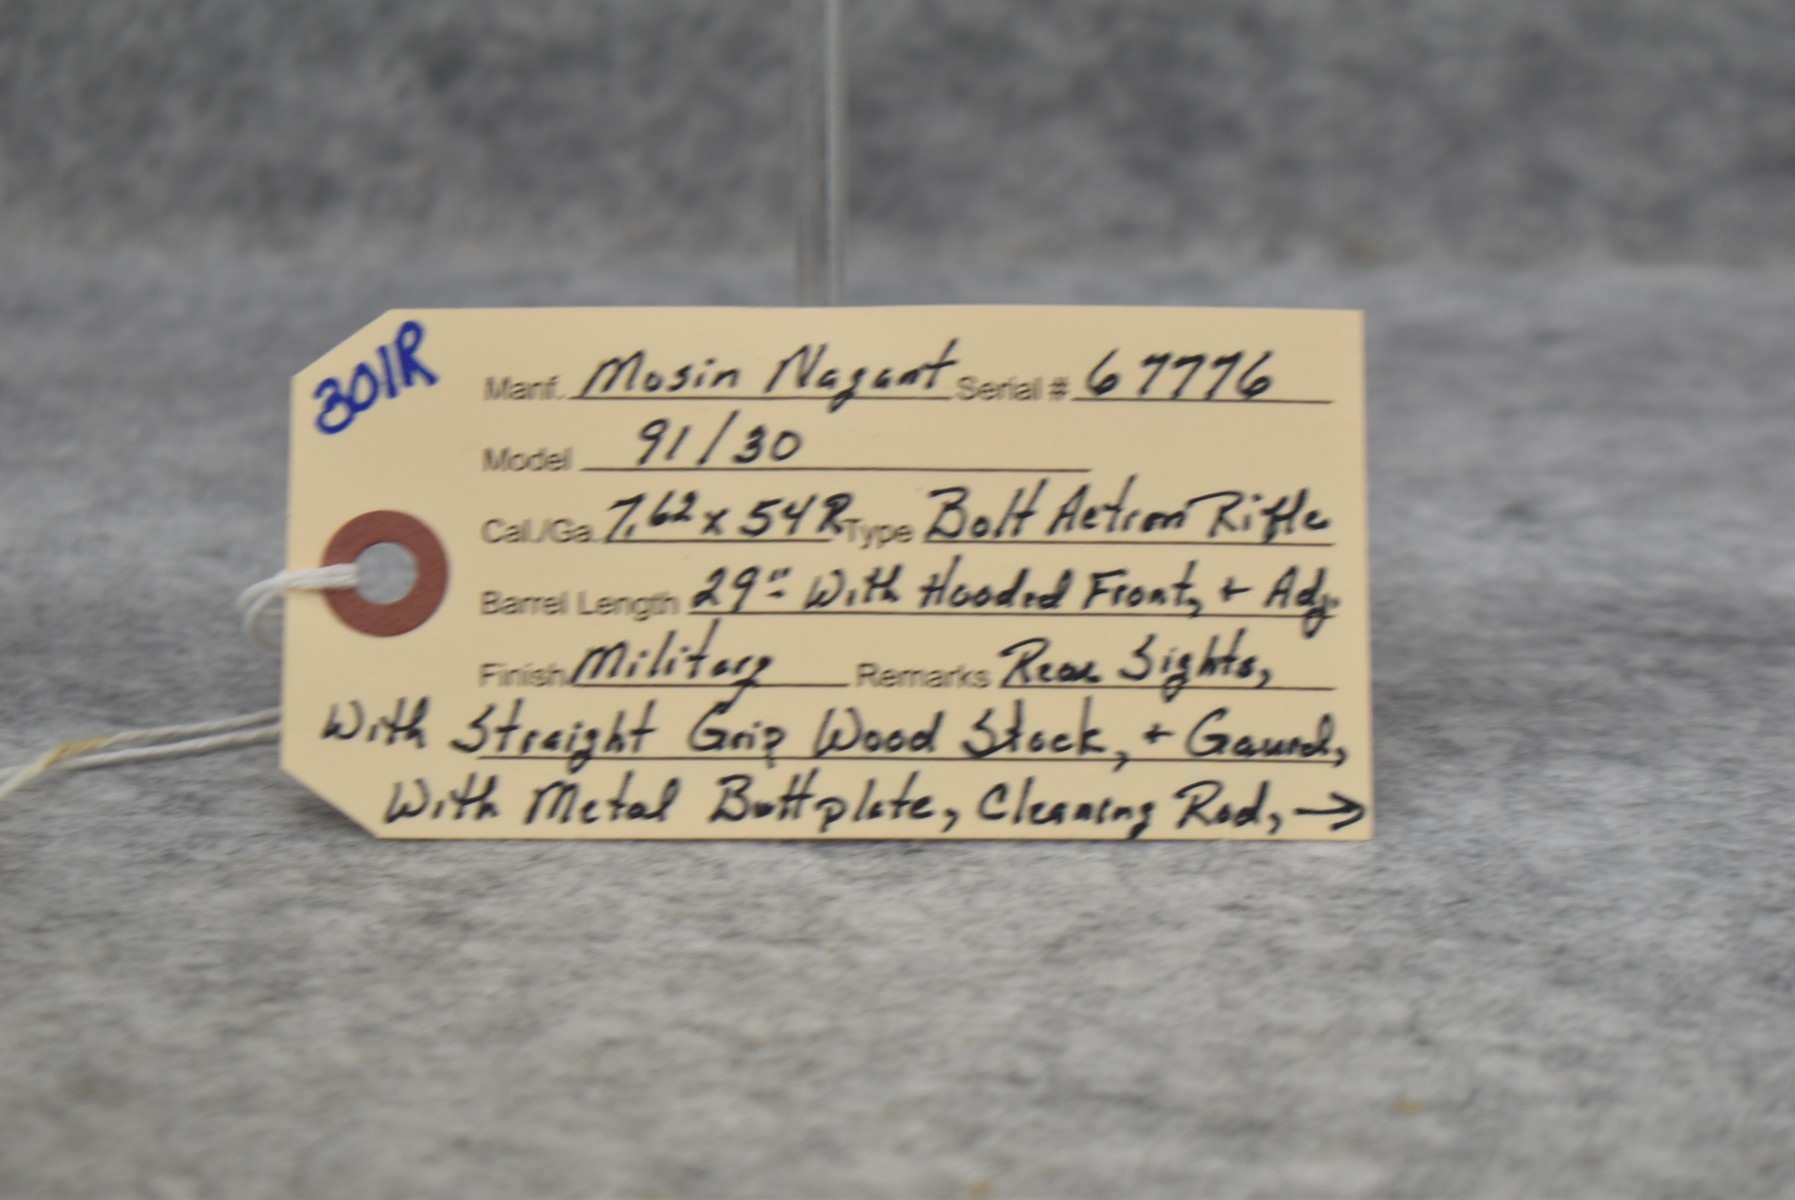 301R
Manf. Mosin Nagant Serial # 67776
Model 91/30
Cal./Ga. 7.62 x 54R Type Bolt Action Rifle
Barrel Length 29" With Hooded Front, + Adj.
Finish Military Remarks Rear Sights,
With Straight Grip Wood Stock, + Gaurd,
With Metal Buttplate, Cleaning Rod, →